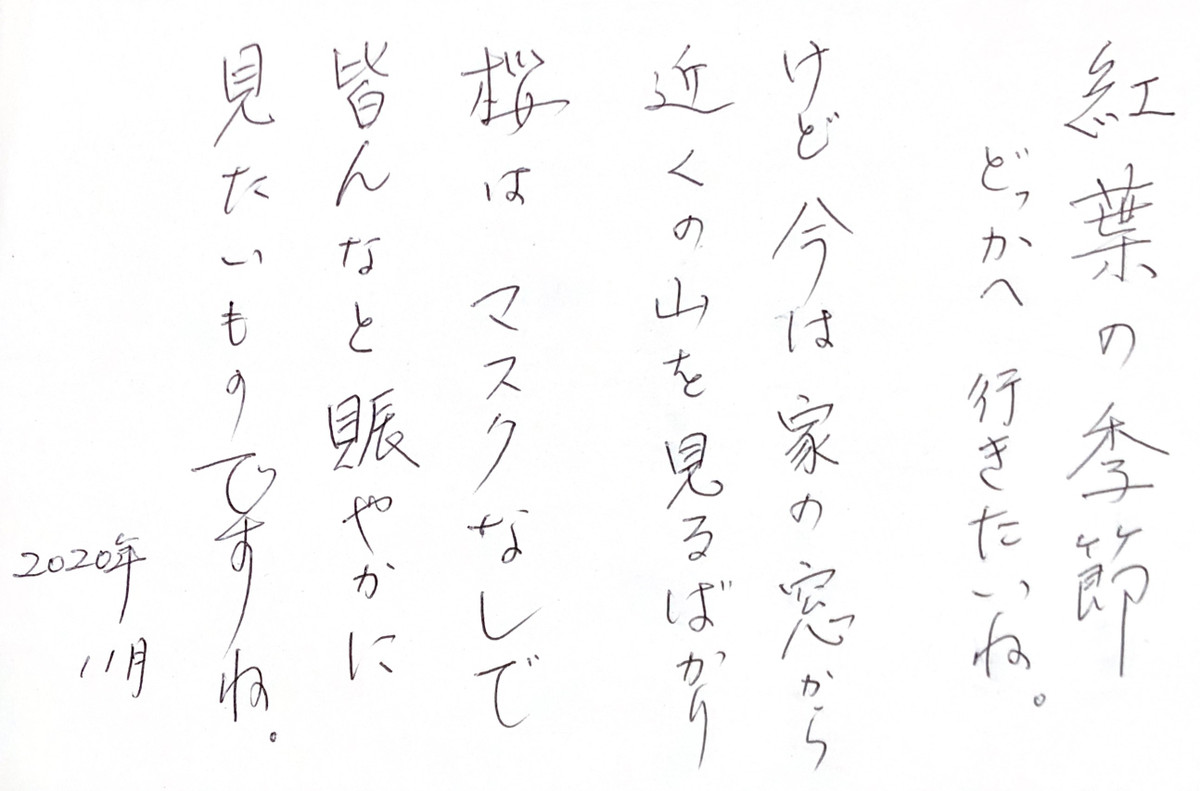 紅葉の季節
どっかへ 行きたいね。
けど 今は 家の窓から
近くの山を見るばかり
桜は マスクなしで
皆んなと賑やかに
見たいものですね。
2020年
11月